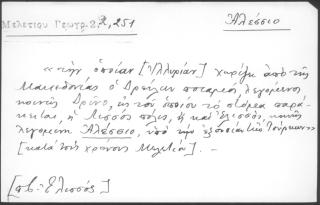 Μελετίου Γεωγρ. 2, 251
Ἀλέσσιο
«τὴν ὁποίαν [Ἰλλυρίαν] χωρίζει ἀπὸ τῆς
Μακεδονίας ὁ Δρείλων ποταμός, λεγόμενος
κοινῶς Δρῖνο, εἰς τοῦ ὁποίου τὸ στόμα παρά-
κειται, ἡ Λισσὸς πόλις, ἢ καὶ Ἐλισσός, κοινῶς
λεγομένη Ἀλέσσιο, ὑπὸ τὴν ἐξουσίαν τῶν Τούρκων»
[κατὰ τοὺς χρόνους Μελετίου].
[πβ. Ἐλισσός]